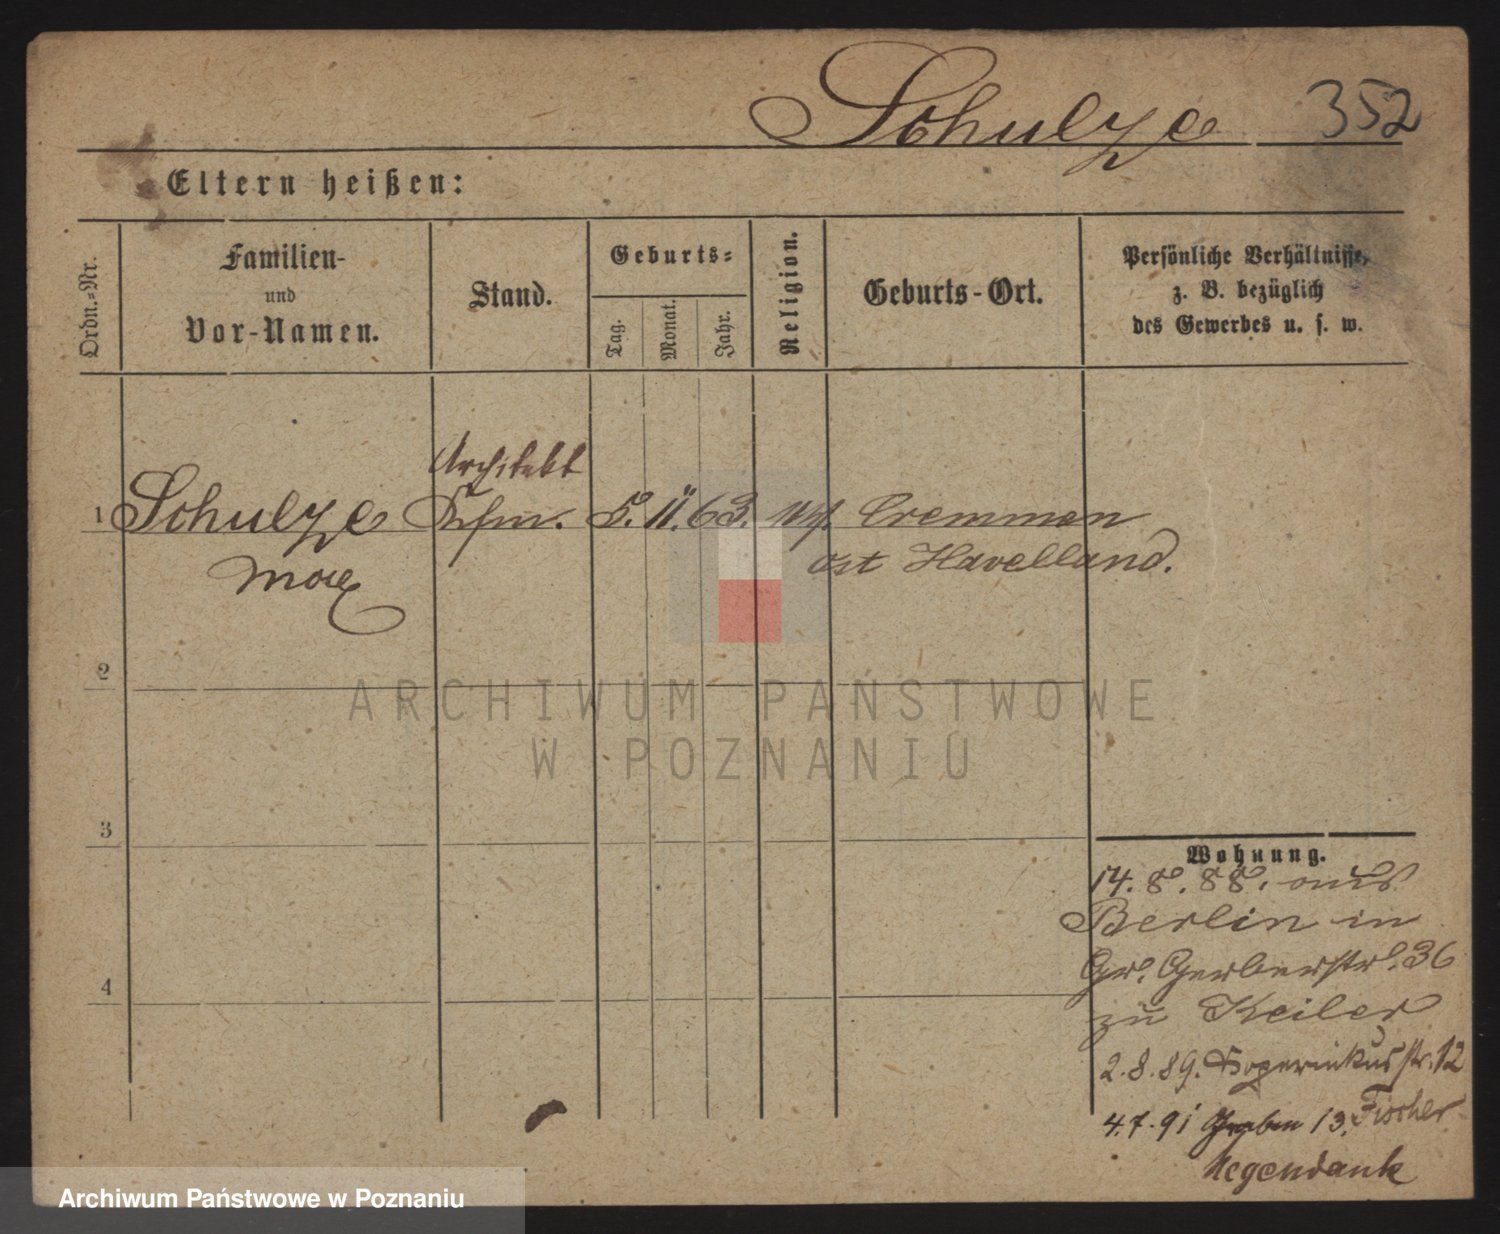 Schulze 352
Eltern heißen:
Ordn.=Nr.
Familien-
und
Vor-Namen.
Stand.
Geburts=
Tag.
Monat.
Jahr.
Religion.
Geburts-Ort.
Persönliche Verhältnisse,
z. B. bezüglich
des Gewerbes u. s. w.
Architekt
1 Schulze Kfm. 5. 11. 63. Cremmen
Max ost Havelland.
2
ARCHIWUM PAŃSTWOWE
W POZNANIU
3
Wohnung.
14. 8. 88. aus
Berlin in
Gr. Gerberstr. 36
zu Keiler
4
2. 8. 89. Kopernikusstr. 12
4. 7. 91 Graben 13. Fischer
Regendank
Archiwum Państwowe w Poznaniu